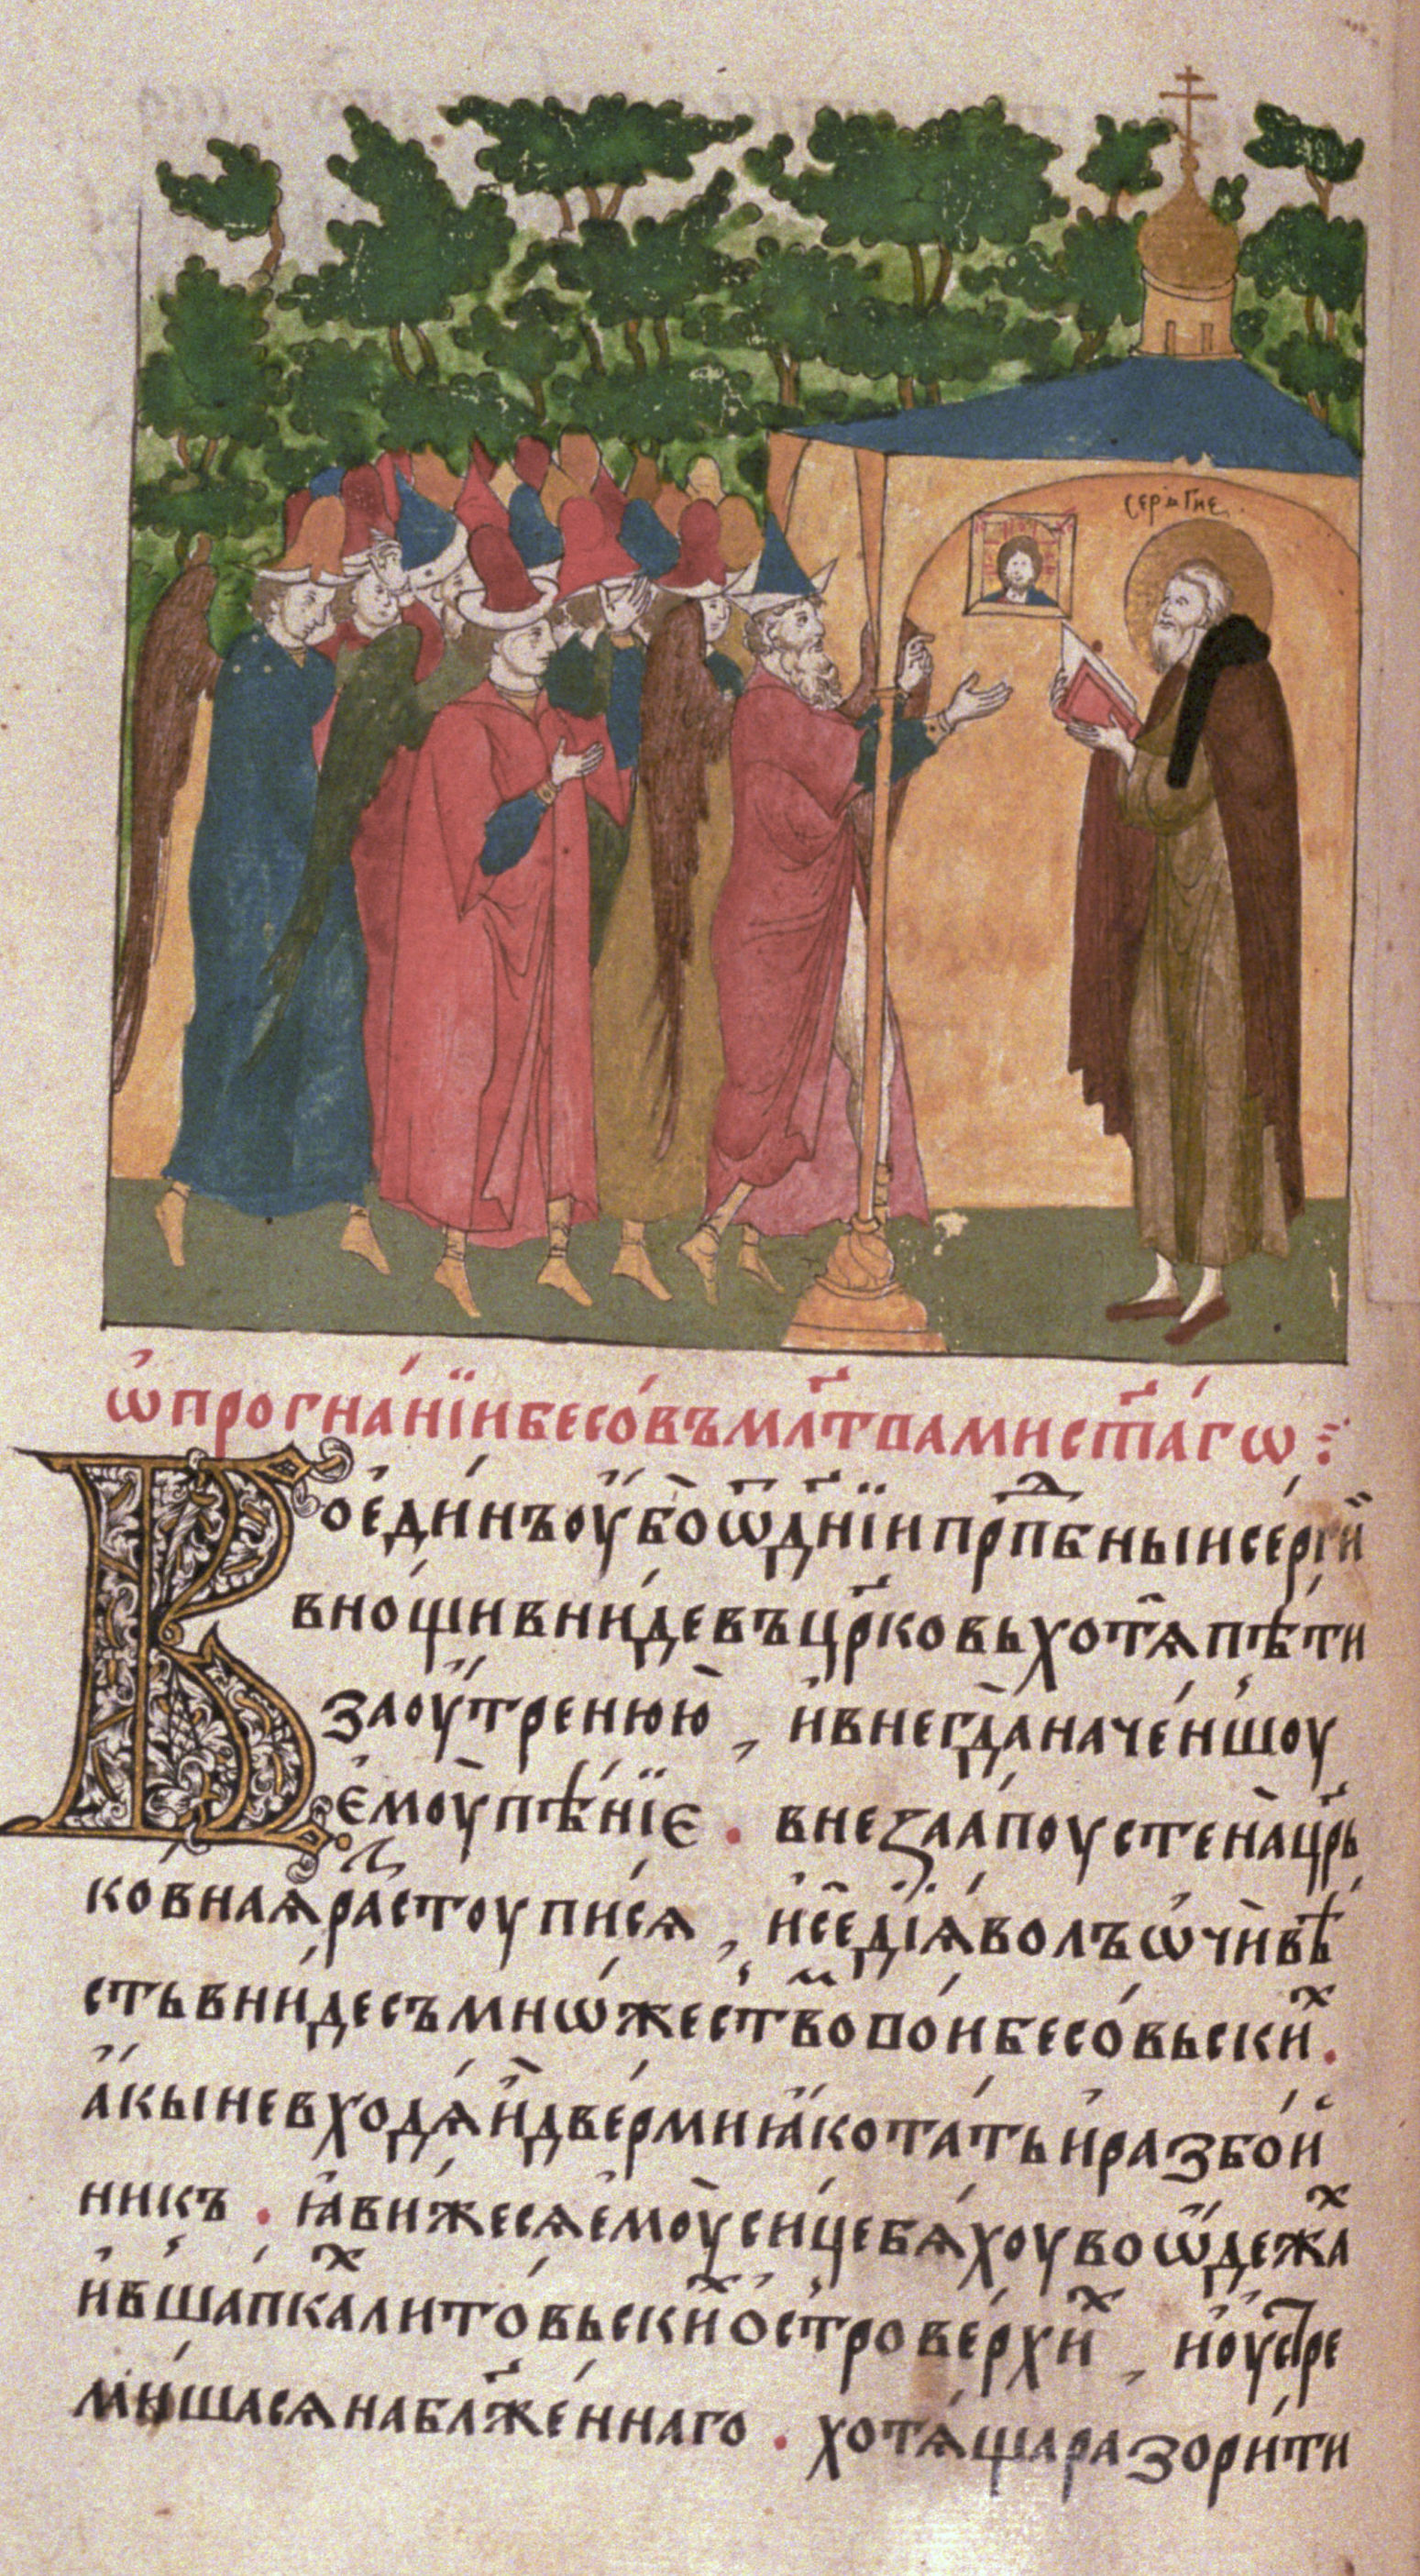 сергие
ѡ҆прогна́нїибесо́въмл҃твамист҃а́гѡ
Вое҆ди́нъоу҆́бѡѿдн҃їипрпⷣбныисерги
вно́щивни́девъцр҃ковьхотѧ̀пѣ́ти
заоу҆́тренюю̀, и҆внегда̀наче́ншоу
є҆моу̀пѣ́нїє. внезаа́поустена̀цр҃ь
ко́внаѧрастоупи́сѧ, и҆сѐдїѧ́волъѡ҆чи́вѣ
стьвни́десъмнѡ́жествⷨово́ибесо́вьскиⷯ.
а҆́кыневходѧ́и҆две́рмиꙗ҆́кота́тьи҆разбо́и
никъ. ꙗ҆ви́жесѧе҆моу̀си́цебѧ́хоуво ѡ҆де́жаⷯ
и҆вша́пкаⷯлито́вьскиⷯо҆строве́рхиⷯ, и҆оу҆стре
ми́шасѧнабл҃же́ннаго. хотѧ́щаразори́ти